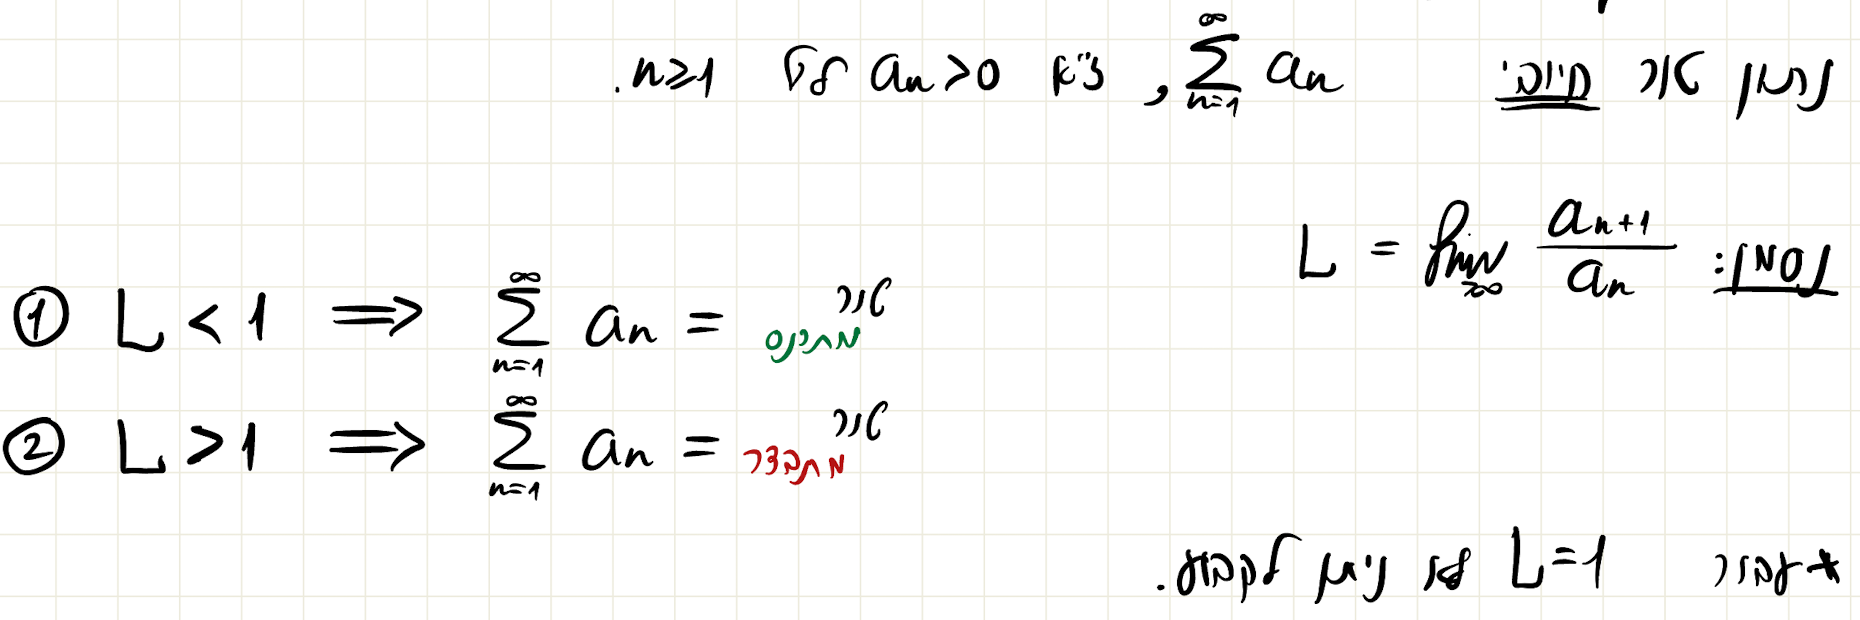 נתון טור חיובי $\sum_{n=1}^{\infty} a_n$, ז"א $a_n > 0$ לכל $n \geq 1$.
נסמן: $L = \lim_{\infty} \frac{a_{n+1}}{a_n}$
① $L < 1 \Rightarrow \sum_{n=1}^{\infty} a_n =$ טור מתכנס
② $L > 1 \Rightarrow \sum_{n=1}^{\infty} a_n =$ טור מתבדר
* עבור $L = 1$ לא ניתן לקבוע.